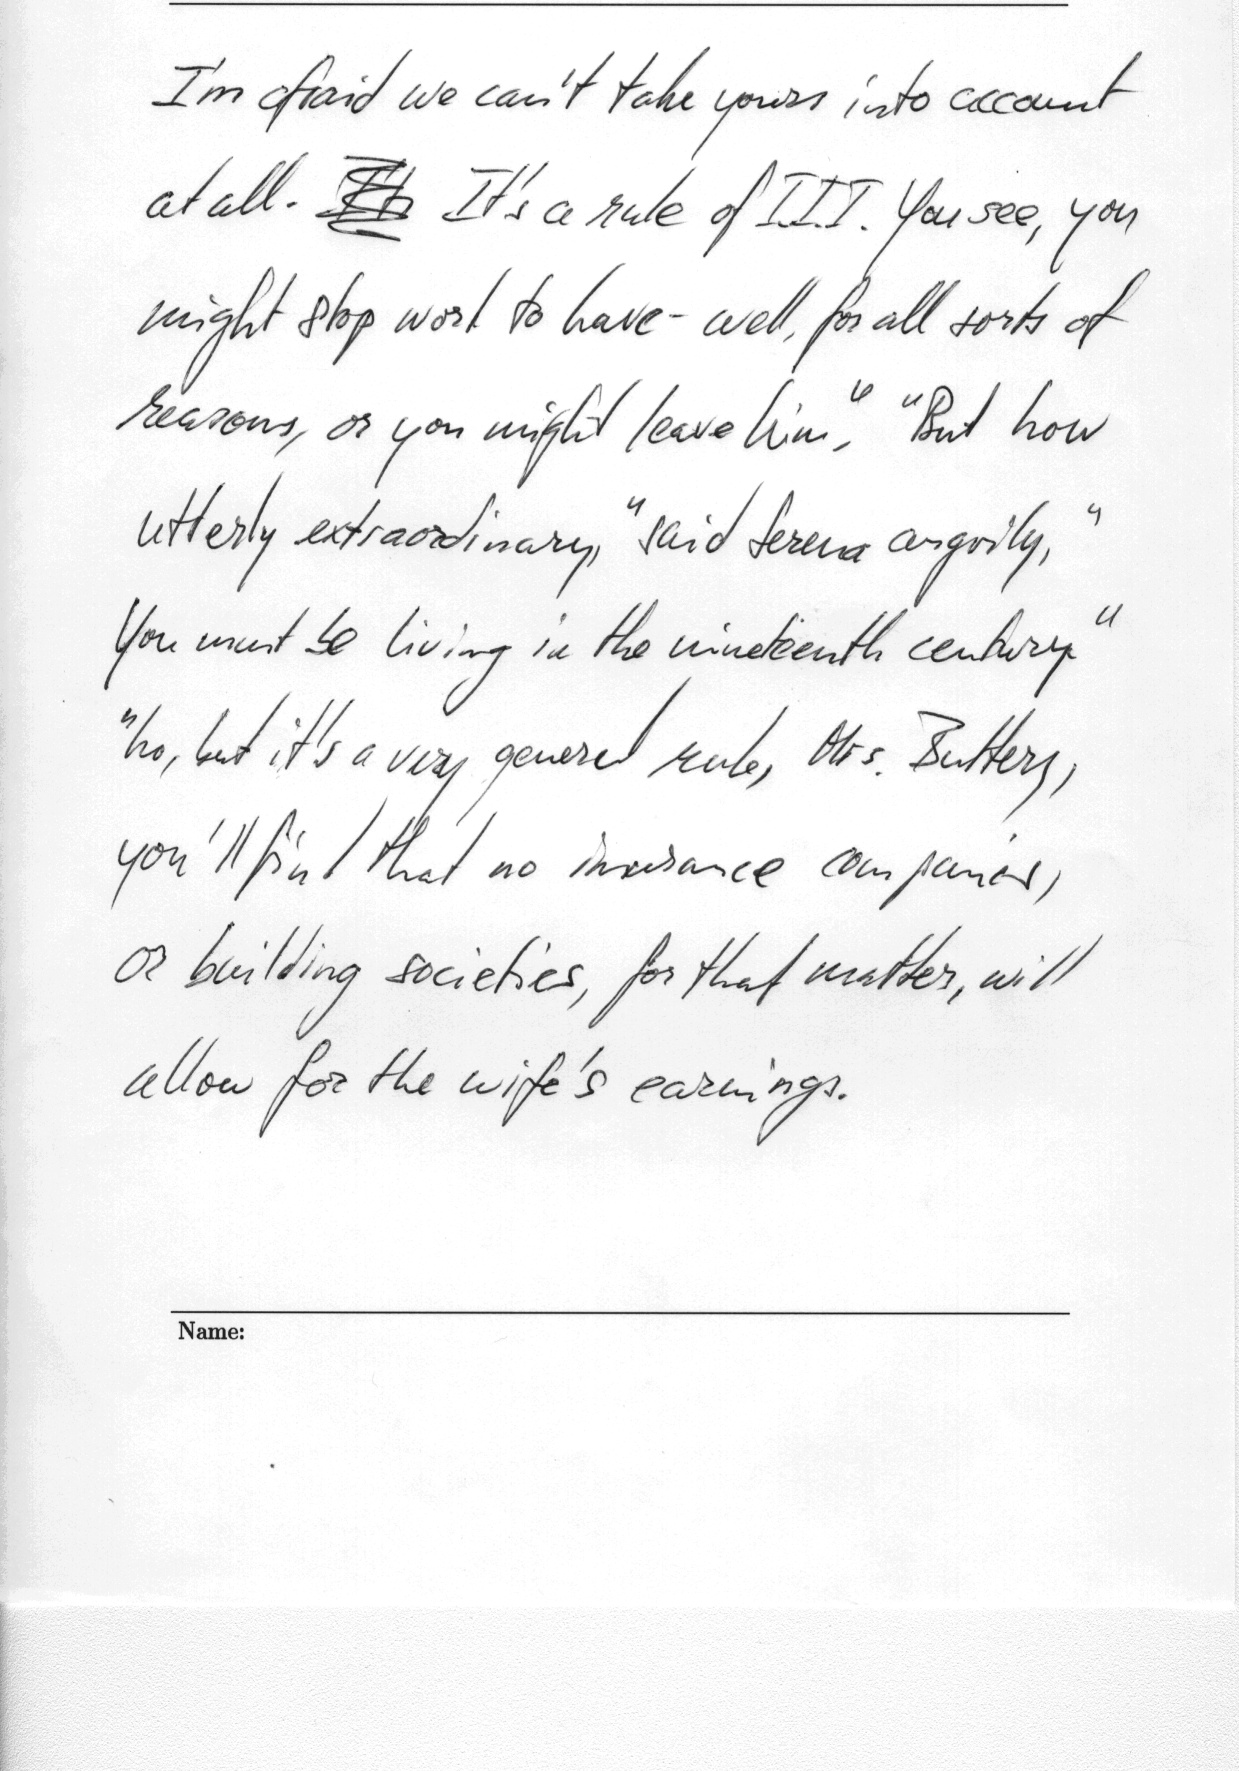 I'm afraid we can't take yours into account
at all. It's a rule of III. You see, you
might stop work to have - well, for all sorts of
reasons, or you might leave him." "But how
utterly extraordinary," said Serena angrily, "
You must be living in the nineteenth century"
"No, but it's a very general rule, Mrs. Buttery,
you'll find that no insurance companies,
or building societies, for that matter, will
allow for the wife's earnings.
Name: